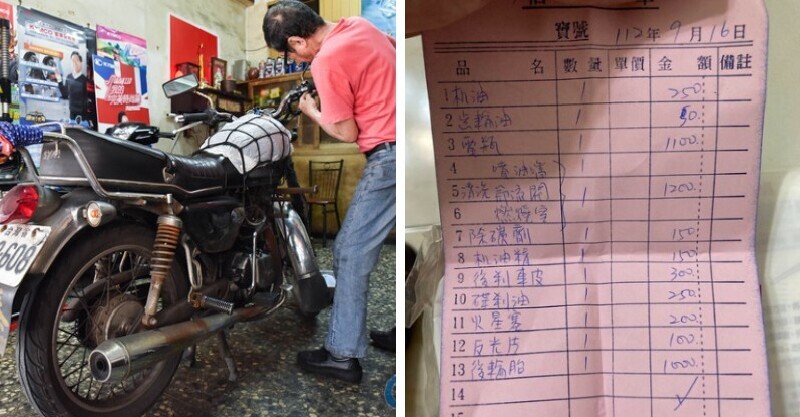 KYMCO
SYM
3608
寶號 112年9月16日
品名 數量 單價 金額 備註
1 机油 1 250
2 齿輪油 1 50
3 電瓶 1 1100
4 噴油嘴
5 清洗 節流閥 1 1200
6 燃燒室
7 除碳劑 1 150
8 机油精 1 150
9 後刹車皮 1 300
10 碟刹油 1 250
11 火星塞 1 200
12 反光片 1 100
13 後輪胎 1 1000
14
15